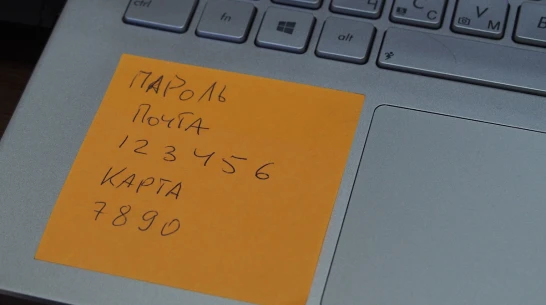 ctrl
fn
alt
Ч
С
C
М
V
ПАРОЛЬ
ПОЧТА
123456
КАРТА
7890